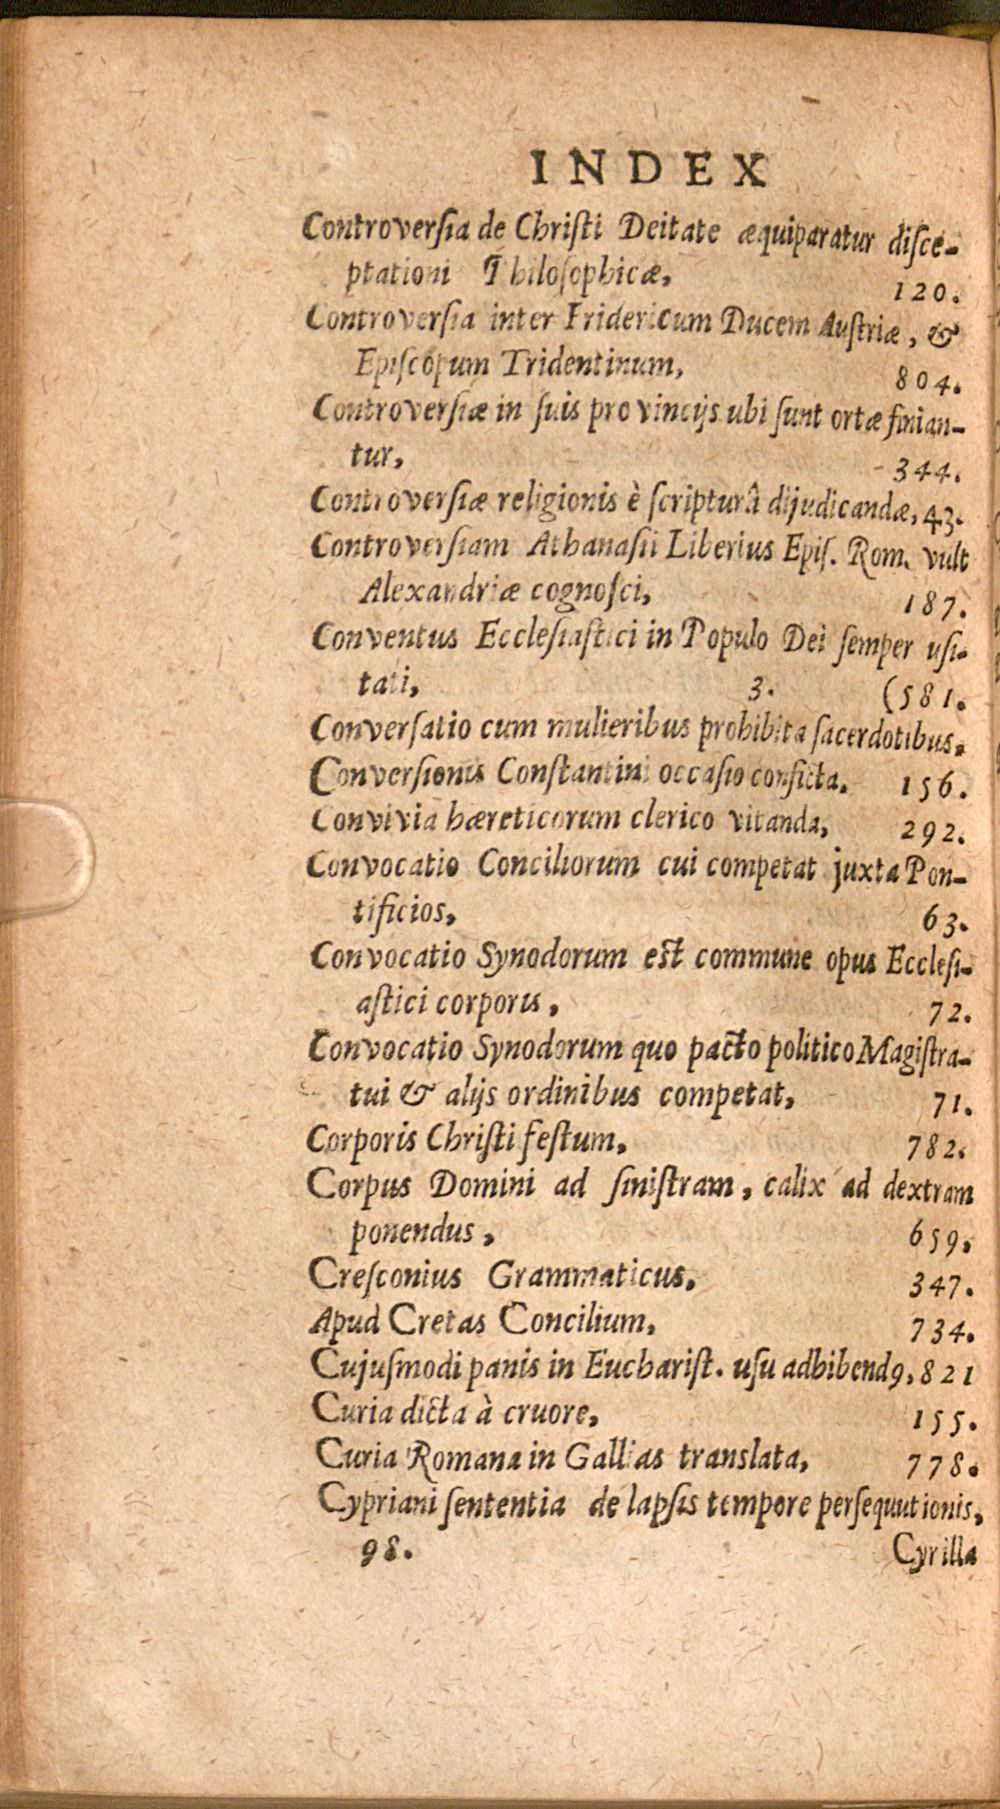 INDEX
Controversia de Christi Deitate æquiparatur disce-
ptationi Philosophicæ, 120.
Controversia inter Fridericum Ducem Austriæ, &
Episcopum Tridentinum, 804.
Controversiæ in suis provincijs ubi sunt ortæ finian-
tur, 344.
Controversiæ religionis è scripturâ dijudicandæ, 43.
Controversiam Athanasii Liberius Epis. Rom. vult
Alexandriæ cognosci, 187.
Conventus Ecclesiastici in Populo Dei semper usi-
tati, 3. (581.
Conversatio cum mulieribus prohibita sacerdotibus,
Conversionis Constantini occasio conficta. 156.
Convivia hæreticorum clerico vitanda, 292.
Convocatio Conciliorum cui competat juxta Pon-
tificios, 63.
Convocatio Synodorum est commune opus Ecclesi-
astici corporis, 72.
Convocatio Synodorum quo pacto politico Magistra-
tui & alijs ordinibus competat, 71.
Corporis Christi festum, 782.
Corpus Domini ad sinistram, calix ad dextram
ponendus, 659,
Cresconius Grammaticus, 347.
Apud Cretas Concilium, 734.
Cujusmodi panis in Eucharist. usu adhibendꝰ, 821
Curia dicta à cruore, 155.
Curia Romana in Gallias translata, 778.
Cypriani sententia de lapsis tempore persequutionis,
98. Cyrilla